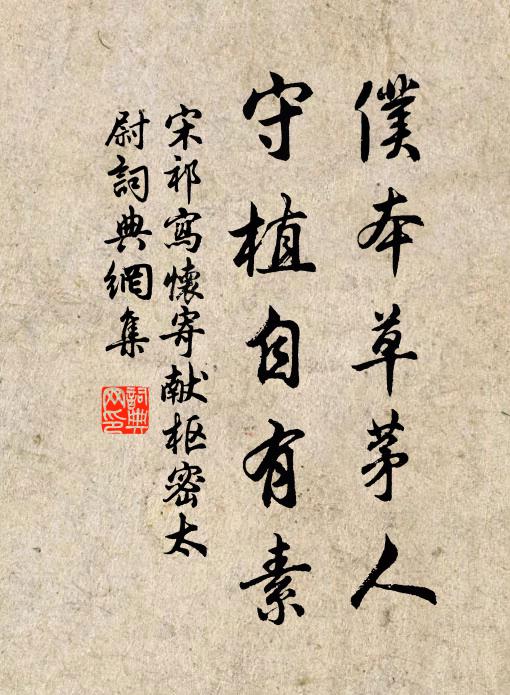 僕本草茅人
守植自有素
宋祁寫懷寄献枢密太
尉詞典網集
詞典网印